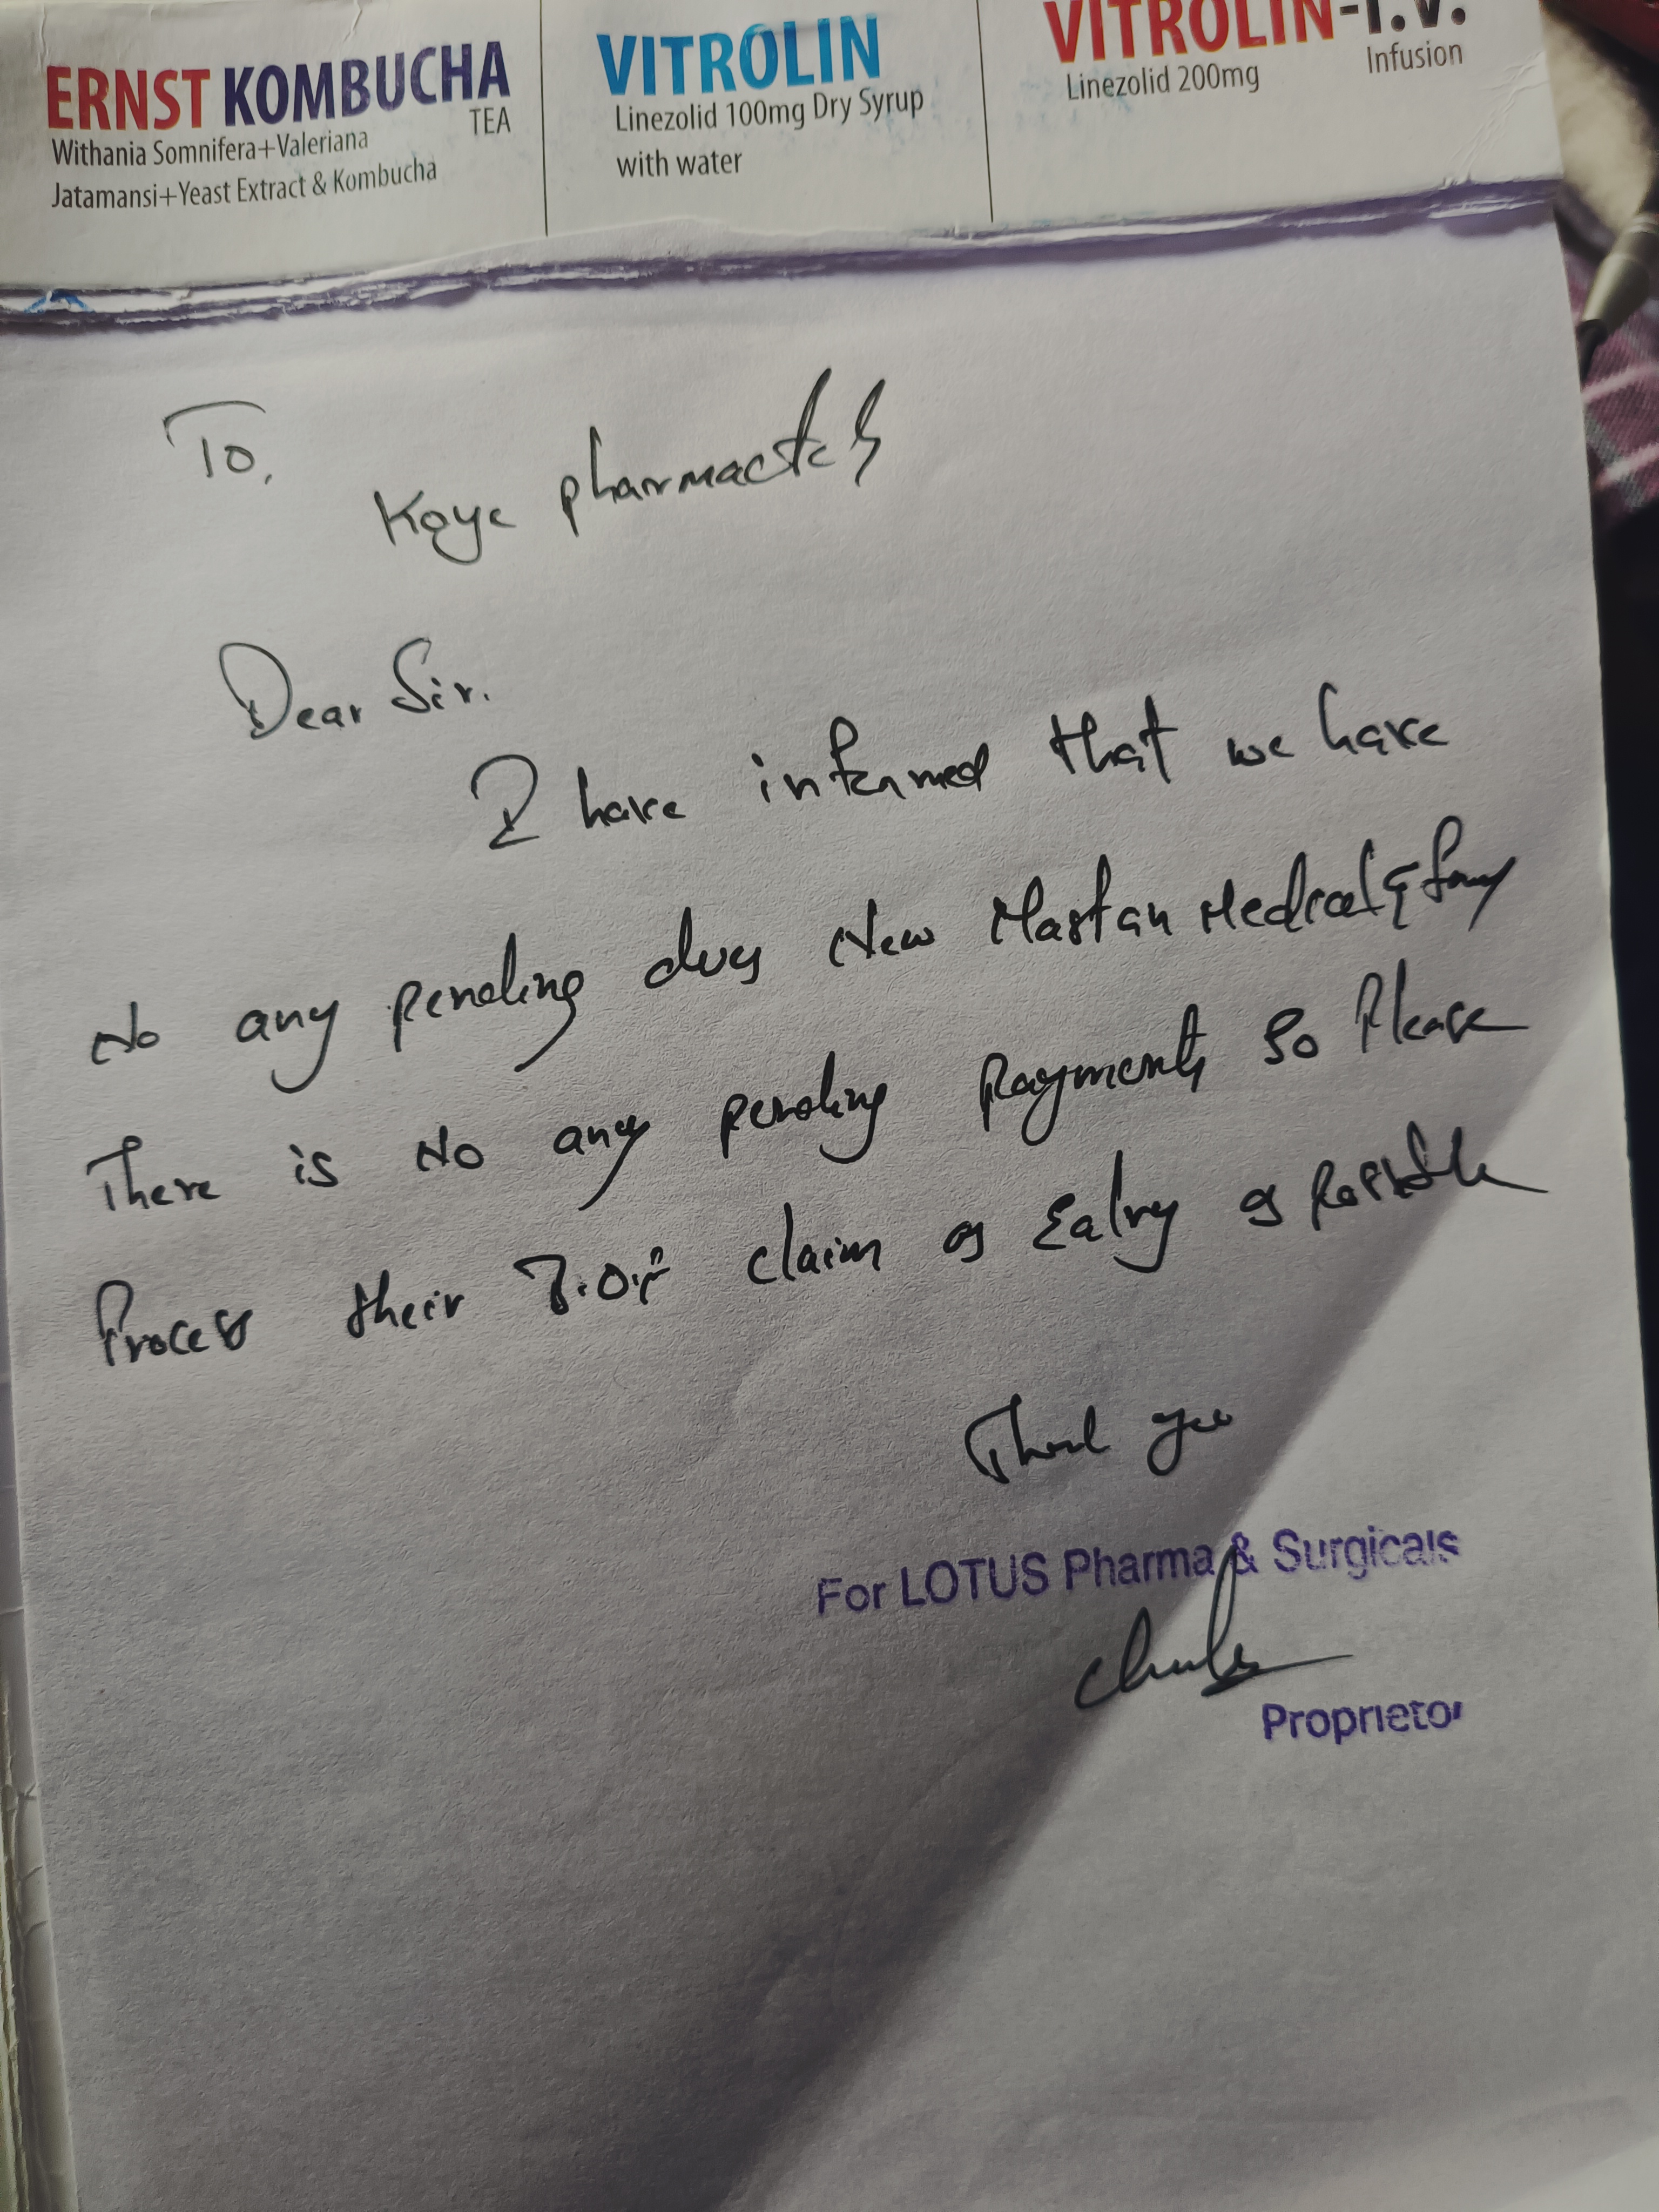 ERNST KOMBUCHA
TEA
Withania Somnifera+Valeriana
Jatamansi+Yeast Extract & Kombucha
VITROLIN
Linezolid 100mg Dry Syrup
with water
VITROLIN-I.V.
Infusion
Linezolid 200mg
To,
Koye
Dear Sir.
I have informed that we have
No any pending dues New Mastan Medical &
There is No any pending Payments So Please
Process their claim as Ealry as Possible
Thank you
For LOTUS Pharma & Surgicals
Proprietor